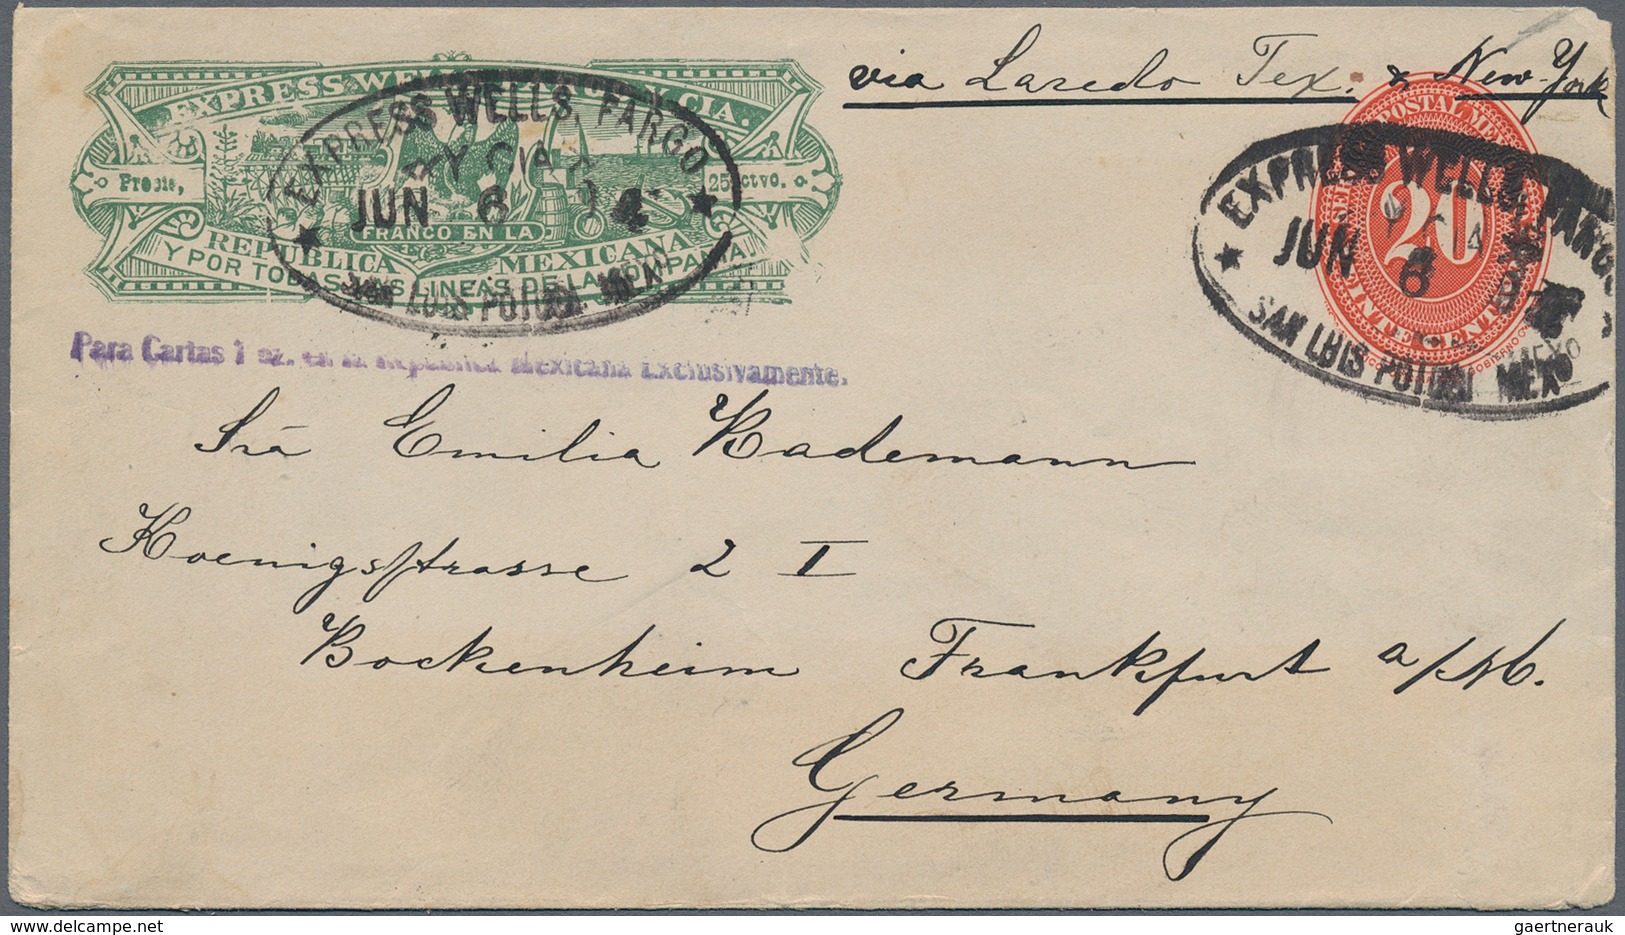 via Laredo Tex. & New-York
EXPRESS WELLS, FARGO Y CIA.
Precio, 25 ctvo.
FRANCO EN LA
REPUBLICA MEXICANA
Y POR TODAS LAS LINEAS DE LA COMPAÑIA
EXPRESS WELLS, FARGO
Y CIA
JUN 6
SAN LUIS POTOSI MEXO
POSTAL MEX
20
EXPRESS WELLS, FARGO
JUN 6
SAN LUIS POTOSI MEX
Para Cartas 1 oz. en la Republica Mexicana Exclusivamente.
Srā Emilia Rademann
Koenigsstrasse 2 I
Bockenheim Frankfurt a/M.
Germany
gaertnerauk